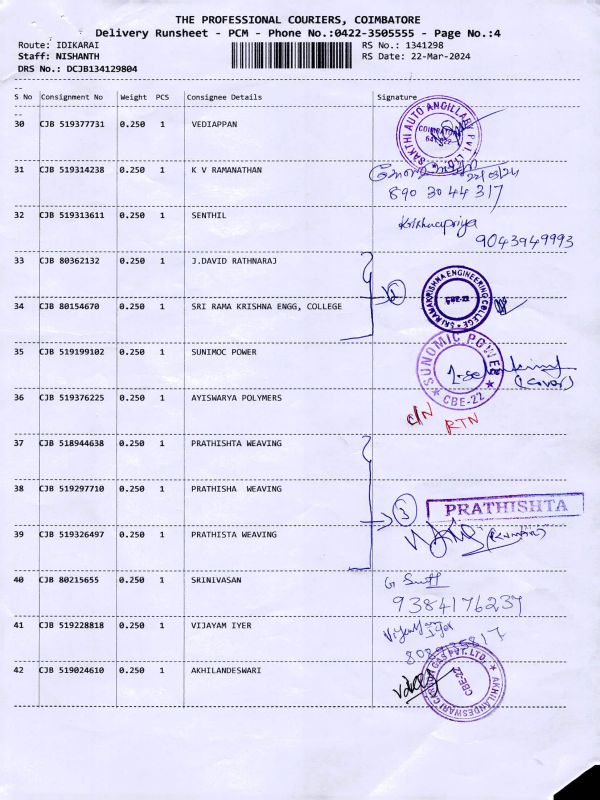 THE PROFESSIONAL COURIERS, COIMBATORE
Delivery Runsheet - PCM - Phone No.:0422-3505555 - Page No.:4
Route: IDIKARAI RS No.: 1341298
Staff: NISHANTH RS Date: 22-Mar-2024
DRS No.: DCJB134129804
S No Consignment No Weight PCS Consignee Details Signature
30 CJB 519377731 0.250 1 VEDIAPPAN
SAKTHI AUTO ANCILLARY PVT.
COIMBATORE
31 CJB 519314238 0.250 1 K V RAMANATHAN
22/03/24
890 3044 317
32 CJB 519313611 0.250 1 SENTHIL
Krishnapriya
9043949993
33 CJB 80362132 0.250 1 J.DAVID RATHNARAJ
34 CJB 80154670 0.250 1 SRI RAMA KRISHNA ENGG, COLLEGE
SRI RAMAKRISHNA ENGINEERING COLLEGE
CBE-22
35 CJB 519199102 0.250 1 SUNIMOC POWER
SUNOMIC POWER
CBE-22
(cover)
36 CJB 519376225 0.250 1 AYISWARYA POLYMERS
C/N
RTN
37 CJB 518944638 0.250 1 PRATHISHTA WEAVING
38 CJB 519297710 0.250 1 PRATHISHA WEAVING
3
PRATHISHTA
39 CJB 519326497 0.250 1 PRATHISTA WEAVING
40 CJB 80215655 0.250 1 SRINIVASAN
9384176237
41 CJB 519228818 0.250 1 VIJAYAM IYER
42 CJB 519024610 0.250 1 AKHILANDESWARI
AKHILANDESWARI GAS PVT. LTD.
CBE-22